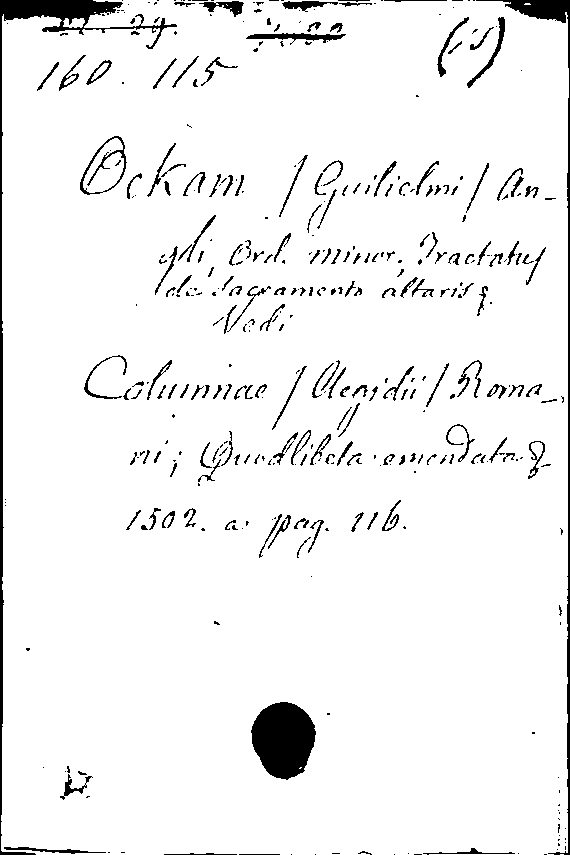 29.
(is)
160. 115
Ockam / Guilielmi / An-
gli, Ord. minor. Tractatus
de sacramento altaris &
Vedi
Columnae / Aegidii / Roma-
ni; Quodlibeta emendata &
1502. a pag. 116.